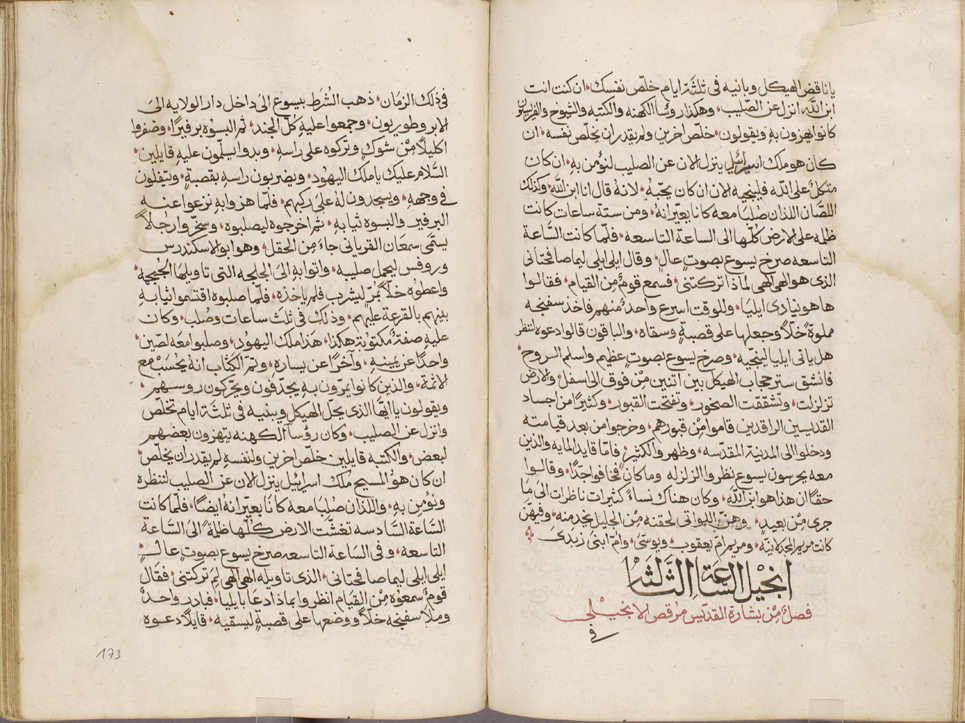 يا ناقض الهيكل وبانيه في ثلثة ايام خلص نفسك ان كنت انت
ابن الله انزل عن الصليب وهكذا روسآ الكهنه والكتبه والشيوخ والفريسيون
كانوا يهزون به ويقولون خلص اخرين ولم يقدر ان يخلص نفسه ان
كان هو ملك اسرآئيل ينزل الان عن الصليب لنؤمن به ان كان
متكلا على الله فلينجيه الان ان كان يحبه لانه قال انا ابن الله وكذلك
اللصان اللذان صلبا معه كانا يعيرانه ومن ستة ساعات كانت
ظلمه على الارض كلها الى الساعة التاسعه فلما كانت الساعة
التاسعه صرخ يسوع بصوت عال وقال ايلى ايلى ليما صافختانى
الذى هو الهى الهى لماذا تركتنى فسمع قوم من القيام فقالوا
ها هو ينادى ايليا وللوقت اسرع واحد منهم فاخذ سفنجه
مملوة خلا وجعلها على قصبة وسقاه والباقون قالوا دعوه لننظر
هل ياتى ايليا لينجيه وصرخ يسوع بصوت عظيم واسلم الروح
فانشق ستر حجاب الهيكل بين اثنين من فوق الى اسفل والارض
تزلزلت وتشققت الصخور وتفتحت القبور وكثيرا من اجساد
القديسين الراقدين قاموا من قبورهم وخرجوا من بعد قيامته
ودخلوا الى المدينة المقدسه وظهروا لكثير فاما قايد المايه والذين
معه يحرسون يسوع نظروا الزلزله وما كان فخافوا جدا وقالوا
حقا ان هذا هو ابن الله وكان هناك نساء كثيرات ناظرات الى ما
جرى من بعيد وهن اللواتى لحقنه من الجليل يخدمنه وفيهن
كانت مريم المجدلانية ومريم ام يعقوب ويوسى وام ابنى زبدى
انجيل الساعة الثالثة
فصل من بشارة القديس مرقص الانجيلى
فى
فى ذلك الزمان ذهب الشرط بيسوع الى داخل دار الولايه الى
الابروطوريون وجمعوا عليه كل الجند ثم البسوه برفيرا وضفروا
اكليلا من شوك وتركوه على راسه وبدوا يسلمون عليه قايلين
السلام عليك يا ملك اليهود ويضربون راسه بقصبة ويتفلون
فى وجهه ويسجدون له على ركبهم فلما هزوا به نزعوا عنه
البرفير والبسوه ثيابه ثم اخرجوه ليصلبوه وسخروا رجلا
يسمى سمعان القريانى جاء من الحقل وهو ابو الاسكندرس
وروفس ليحمل صليبه واتوا به الى الجلجله التى تاويلها الجمجمة
واعطوه خلا بمر ليشرب فلم ياخذه فلما صلبوه اقتسموا ثيابه
بينهم بالقرعة عليهم وذلك فى ثلث ساعات وصلب وكان
عليه صفة مكتوبة هكذا هذا ملك اليهود وصلبوا معه لصين
واحدا عن يمينه وآخرا عن يساره وتم الكتاب انه يحسب مع
الاثمة والذين كانوا يمرون به يجدفون ويحركون روسهم
ويقولون يا ايها الذى يحل الهيكل ويبنيه فى ثلثة ايام تخلص
وانزل عن الصليب وكان رؤسآ الكهنه يتهزون بعضهم
لبعض والكتبه قايلين خلص اخرين ولنفسه لم يقدر ان يخلص
ان كان هو المسيح ملك اسرايل ينزل الان عن الصليب لننظره
ونؤمن به واللذان صلبا معه كانا يعيرانه ايضا فلما كانت
الساعة السادسه تغشت الارض كلها ظلمة الى الساعة
التاسعه وفى الساعة التاسعه صرخ يسوع بصوت عال
ايلى ايلى ليما صافختانى الذى تاويله الهى الهى لم تركتنى فقال
قوم سمعوه من القيام انظروا بماذا دعا بايليا فبادر واحد
وملا سفنجه خلا ووضعها على قصبة ليسقيه قايلا دعوه
173